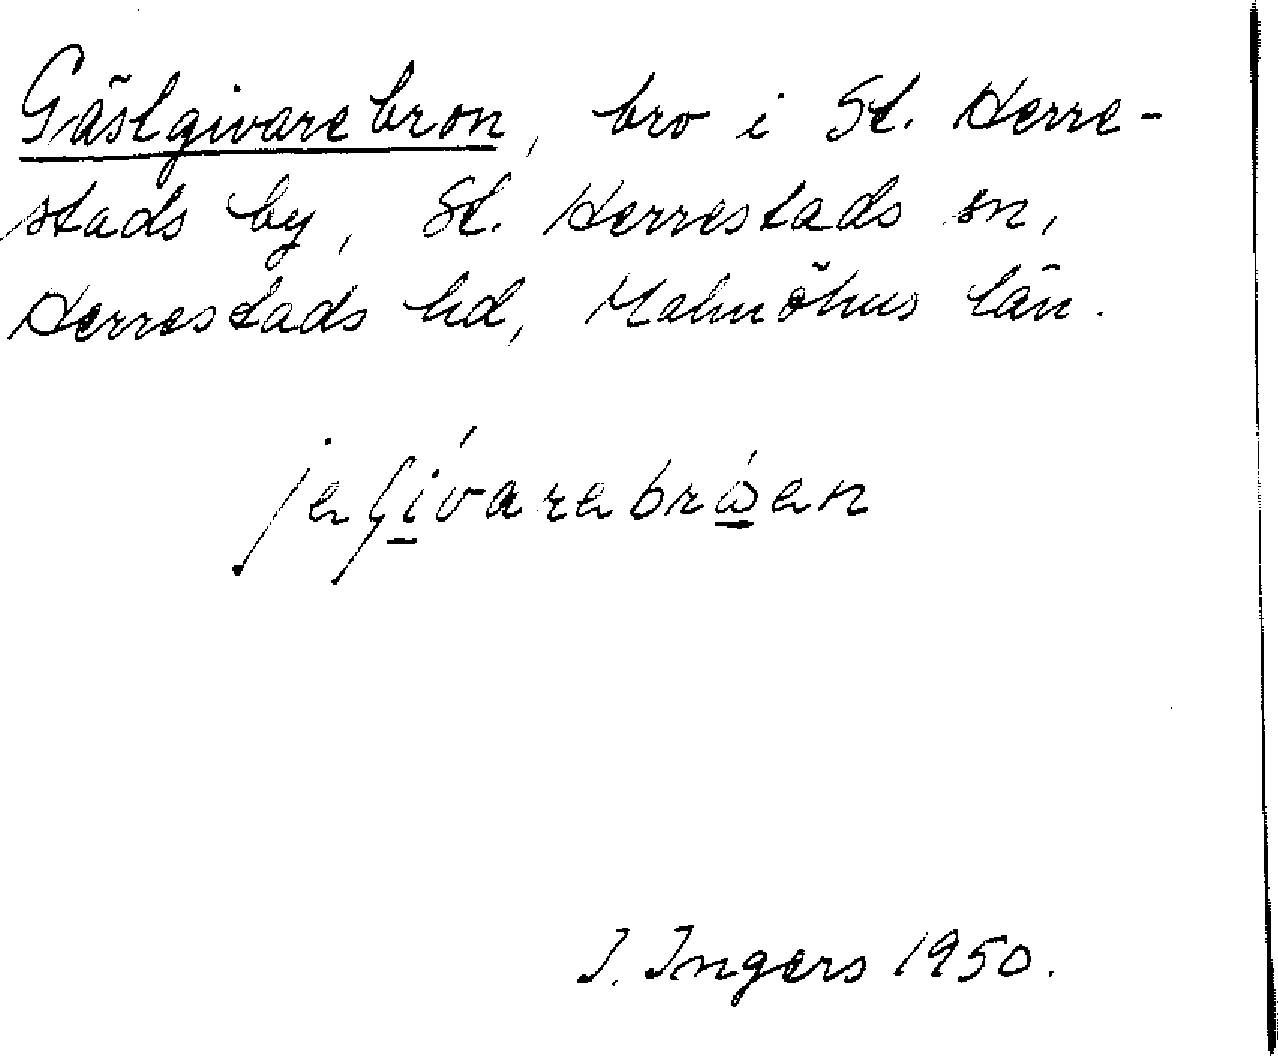 Gästgivarebron, bro i St. Herre-
stads by, St. Herrestads sn,
Herrestads hd, Malmöhus län.
jeʃi̲´varebrω̲´en
I. Ingers 1950.